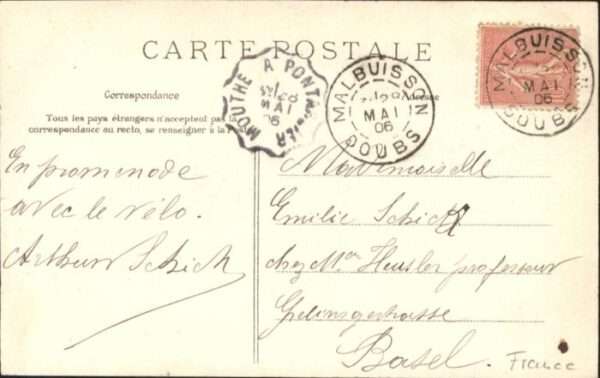 CARTE POSTALE
Correspondance
Adresse
Tous les pays étrangers n'acceptent pas la
correspondance au recto, se renseigner à la P
MOUTHE A PONTARLIER
28
MAI
06
MALBUISSON
28
MAI
06
DOUBS
MALBUISSON
MAI
06
DOUBS
En promenade
avec le vélo.
Arthur Schick
Mademoiselle
Emilie Schick
chez Mr Heusler professeur
Basel.
France